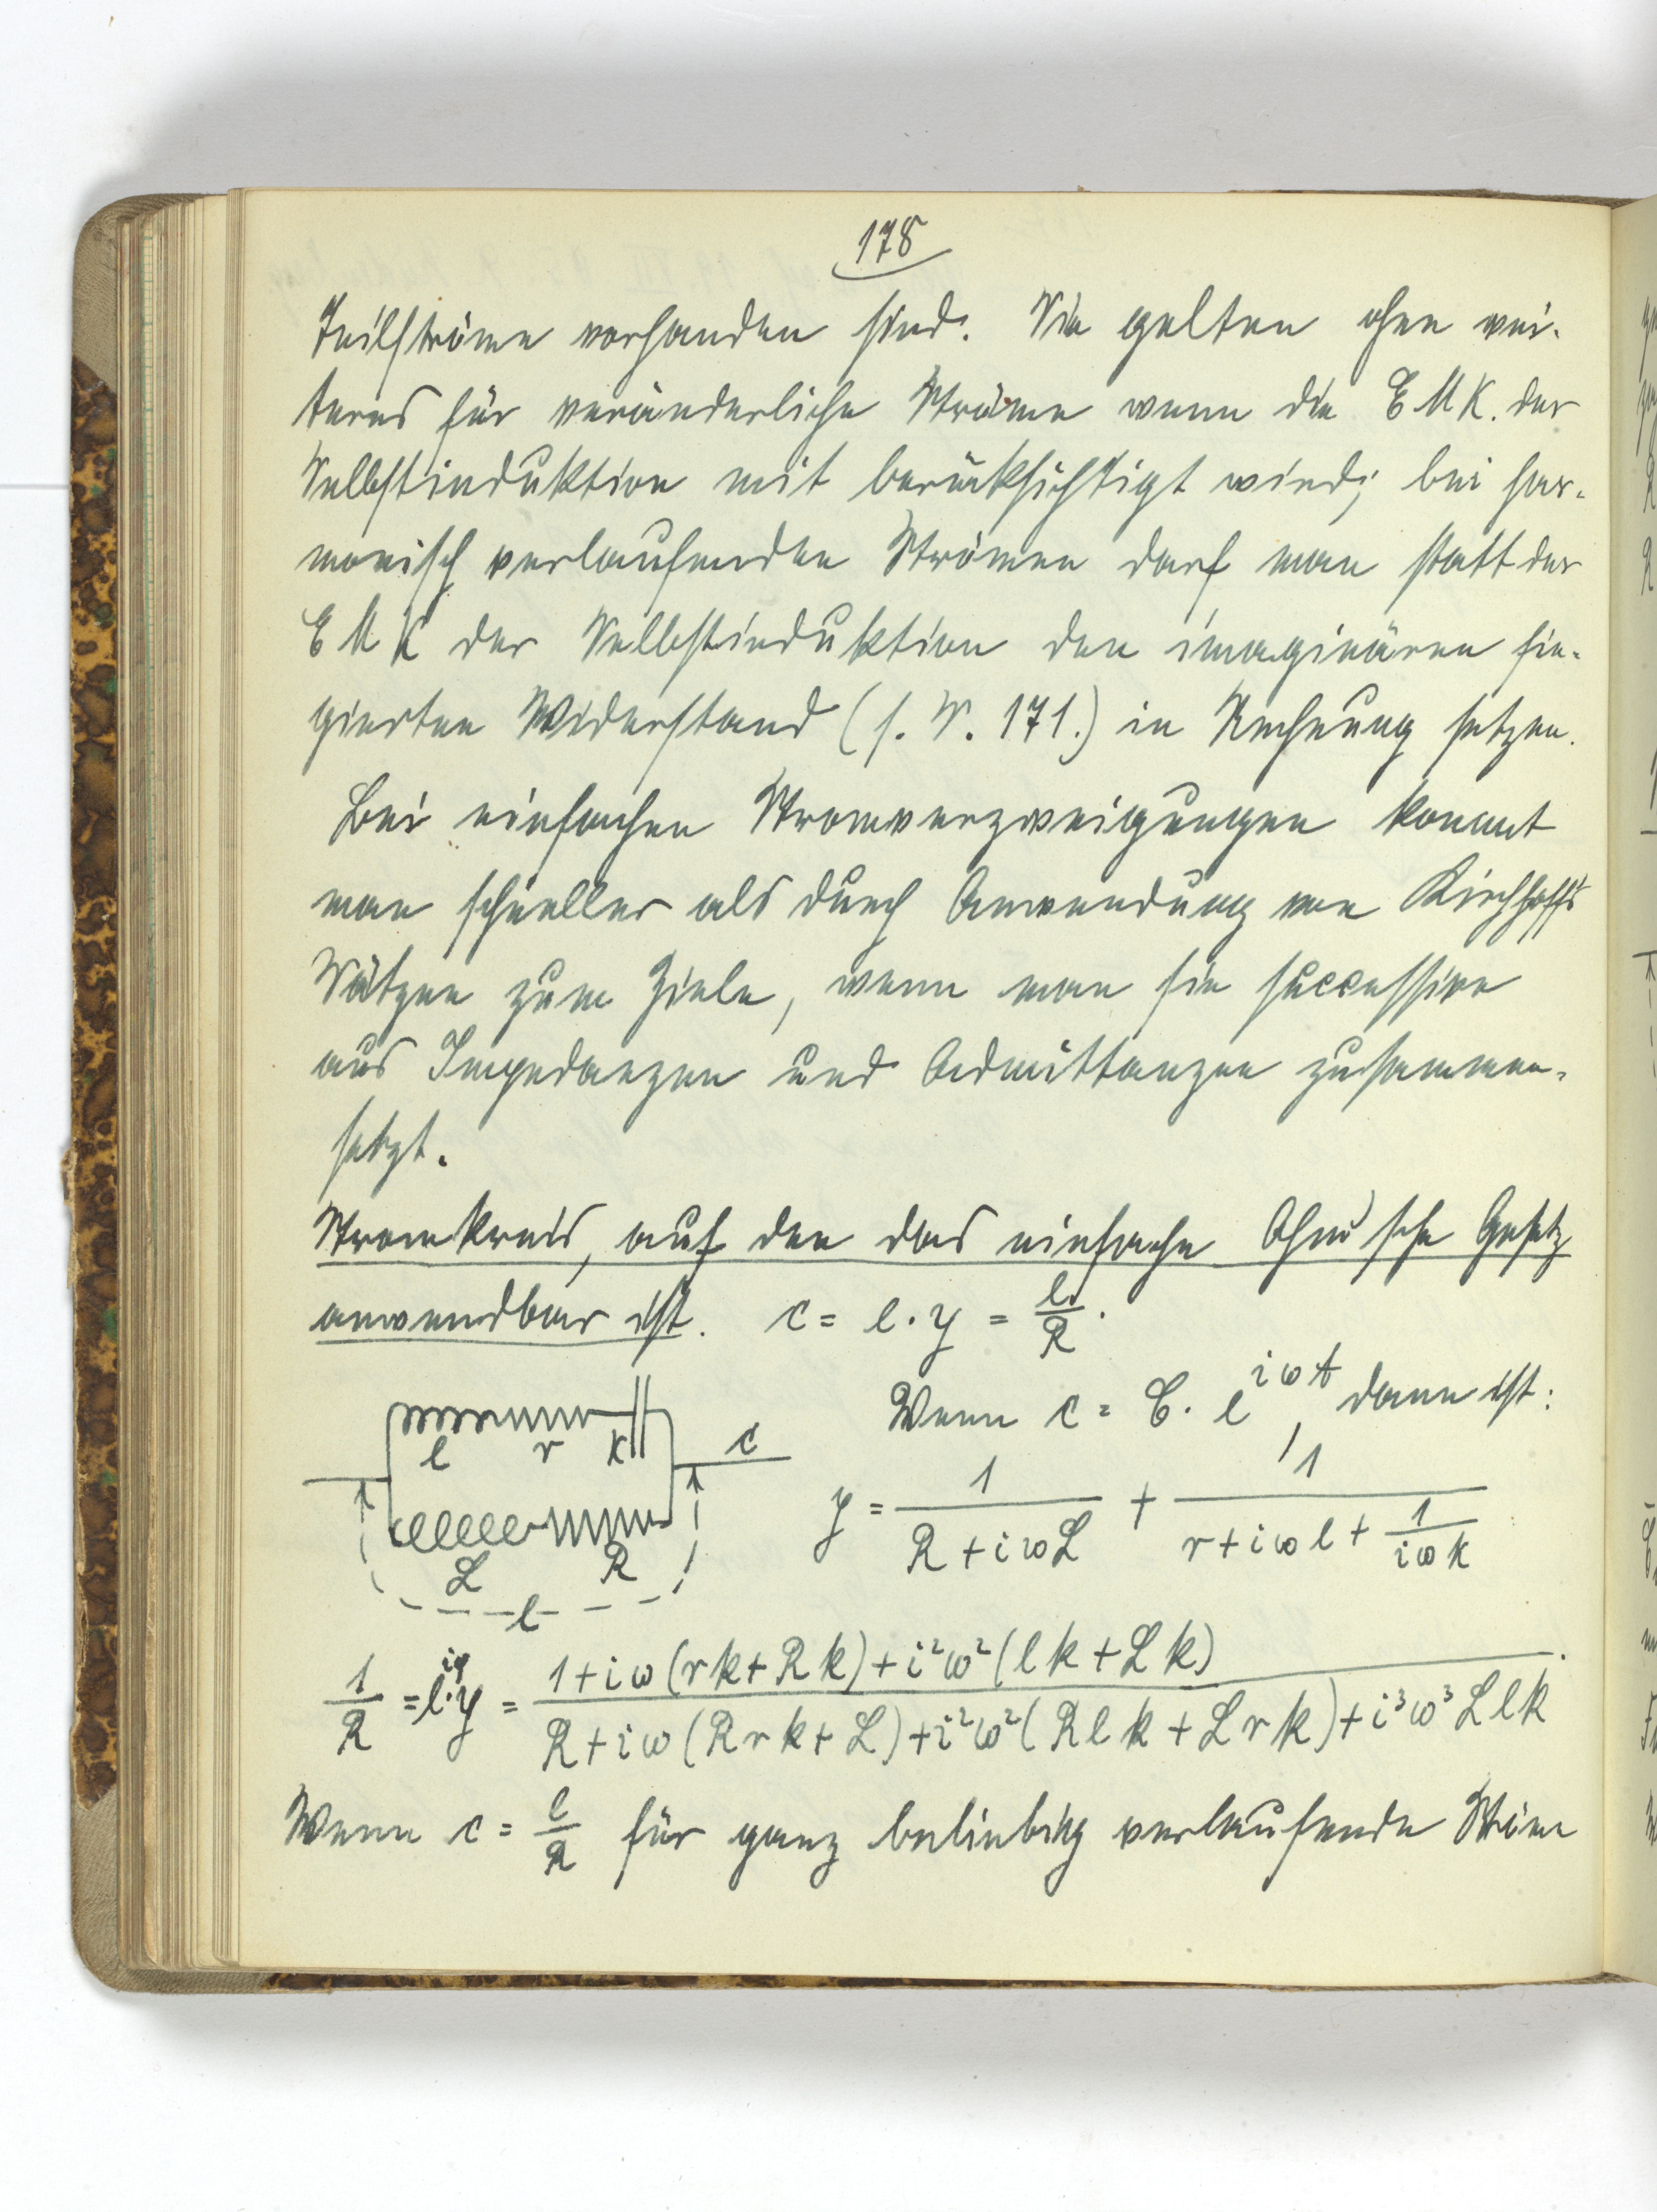 178
Teilströme vorhanden sind. Sie gelten ohne wei-
teres für veränderliche Ströme wenn die E M K. der
Selbstinduktion mit berücksichtigt wird; bei har-
monisch verlaufenden Strömen darf man statt der
E M K der Selbstinduktion den imaginären fin-
gierten Widerstand (s. S. 171.) in Rechnung setzen.
Bei einfachen Stromverzweigungen kommt
man schneller als durch Anwendung von Kirchhoffs
Sätzen zum Ziele, wenn man sie successive
aus Impedanzen und Admittanzen zusammen-
setzt.
Stromkreis, auf den das einfache Ohm'sche Gesetz
anwendbar ist. c = e · y = e/R.
Wenn c = C · e^{iωt}, dann ist:
l r k c
y = 1/(R + iωL) + 1/(r + iωl + 1/(iωk))
L R
e
1/R = e^{iφ} · y = (1 + iω(rk + Rk) + i²ω²(lk + Lk))/(R + iω(Rrk + L) + i²ω²(Rlk + Lrk) + i³ω³Llk)
Wenn c = e/R für ganz beliebig verlaufende Ströme